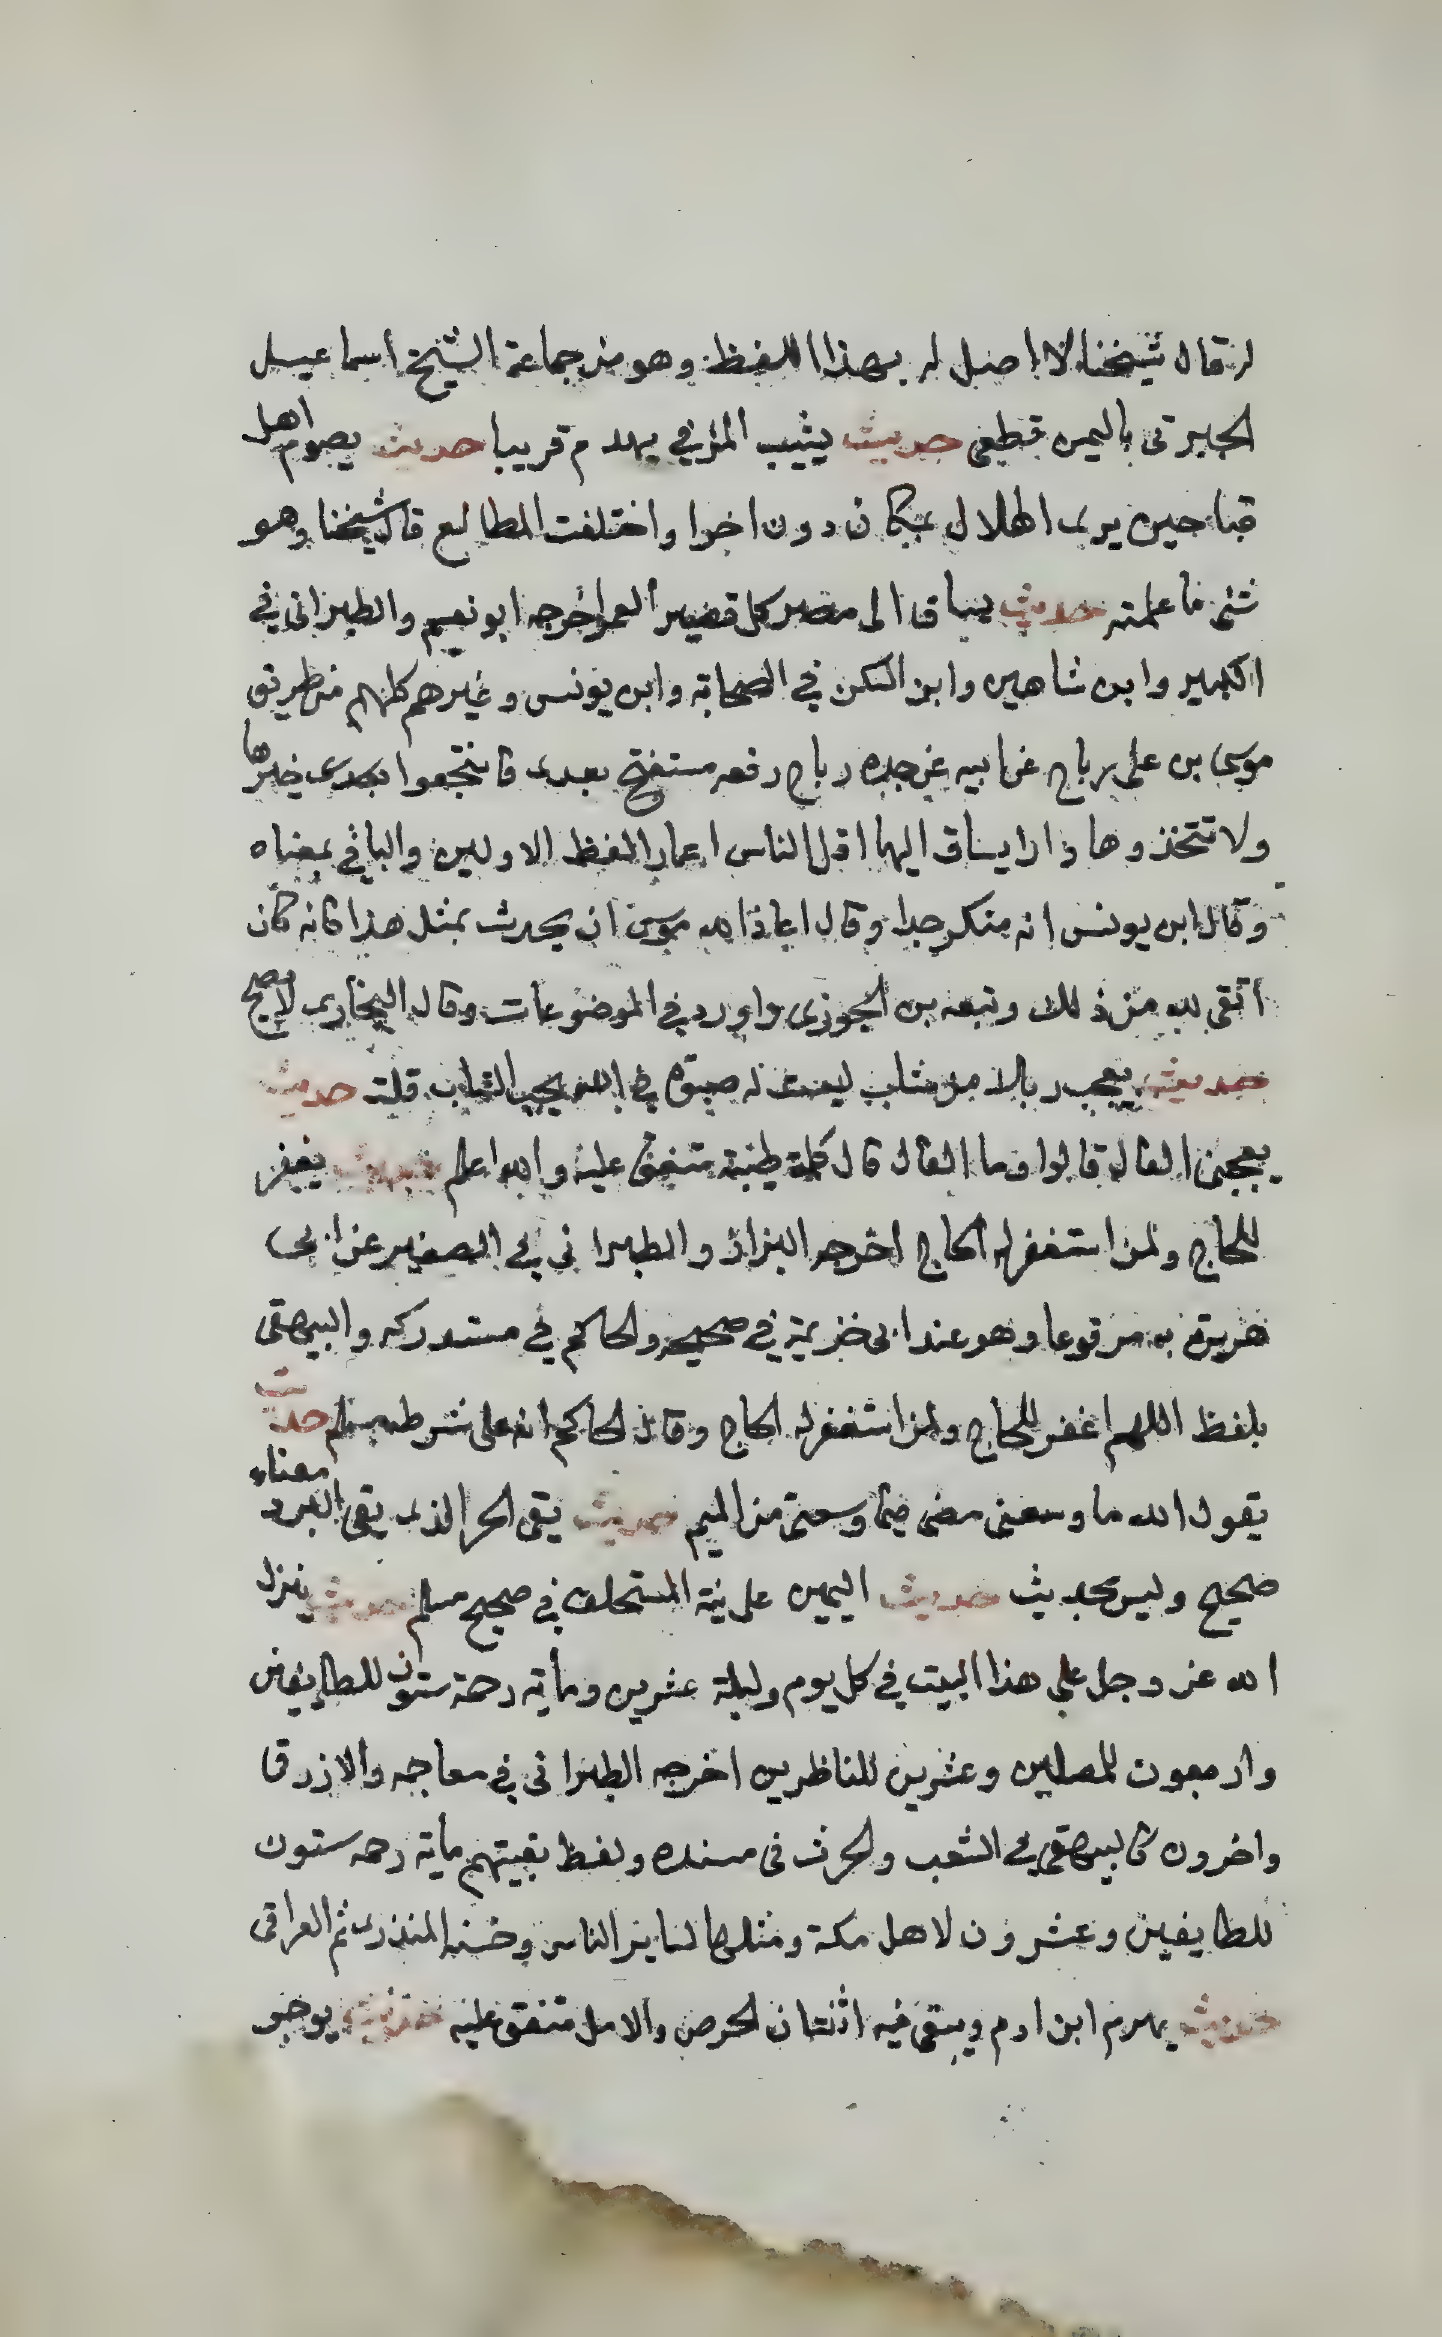 له قال شيخنا لا اصل له بهذا اللفظ وهو من جماعة الشيخ اسماعيل
الجبرتى باليمن قطعى حديث يشيب المؤ في يهدم قريبا حديث يصوم اهل
قباحين يرى الهلال بمكان دون اخرا واختلفت المطالع قال شيخنا وهو
شئ ما علمته حديث يساق الى مصر كل قصير العمر اخرجه ابو نعيم والطبرانى في
الكبير وابن شاهين وابن السكن في الصحابة وابن يونس وغيرهم كلهم من طريق
موسى بن على رباح عن ابيه عن جده رباح رفعه مستفتح بعدى فانتجعوا بعدى خيرها
ولا تتخذوها دارا يساق اليها اقل الناس اعمارا لفظ الاولين والباقي بمعناه
وقال ابن يونس انه منكر جدا وقال اعاذ الله موسى ان يحدث بمثل هذا فانه كان
أتقى لله من ذلك وتبعه بن الجوزى واورد في الموضوعات وقال البخارى لا يصح
حديث يعجب ربك من شاب ليست له صبوة في الله يحب الشاب قلت حديث
يعجبنى الفال قالوا وما الفال قال كلمة طيبة متفق عليه والله اعلم حديث يغفر
للحاج ولمن استغفر له الحاج اخرجه البزاز والطبرانى في الصغير عن ابى
هريرة به مرفوعا وهو عند ابى خزيمة في صحيحه والحاكم في مستدركه والبيهقى
بلفظ اللهم اغفر للحاج ولمن استغفر له الحاج وقال الحاكم انه على شرط مسلم حديث
يقول الله ما وسعنى مضى في ما وسعنى من الميم حديث يقى الحر الذى يقى البرد معناه
صحيح وليس بحديث حديث اليمين على نية المستحلف في صحيح مسلم حديث ينزل
الله عز وجل على هذا البيت في كل يوم وليلة عشرين ومأية رحمة ستون للطايفين
واربعون للمصلين وعشرين للناظرين اخرجه الطبرانى في معاجمه والازرق
واخرون كالبيهقى في الشعب والحرث فى مسنده ولفظ بقيتهم مأية رحمه ستون
للطايفين وعشرون لاهل مكة ومثلها لساير الناس وحسنه المنذرى ثم العراقى
حديث يهرم ابن ادم ويبقى فيه اثنتان الحرص والامل متفق عليه حديث يوجو